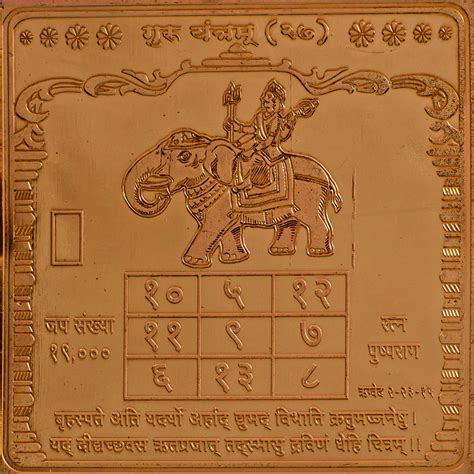 गुरु यंन्त्रम् (२७)
१० ५ १२
जप संख्या
१९,०००
११ ९ ७
रत्न
पुष्पराग
६ १३ ८
ऋग्वेद २-२३-१५
बृहस्पते अंति यदर्यो अर्हाद् द्युमद् विभाति क्रतुमज्जनेषु।
यद् दीद्यच्छवंस ऋतप्रजात् तद्स्मासु द्रविणं धेहि चित्रम्।।